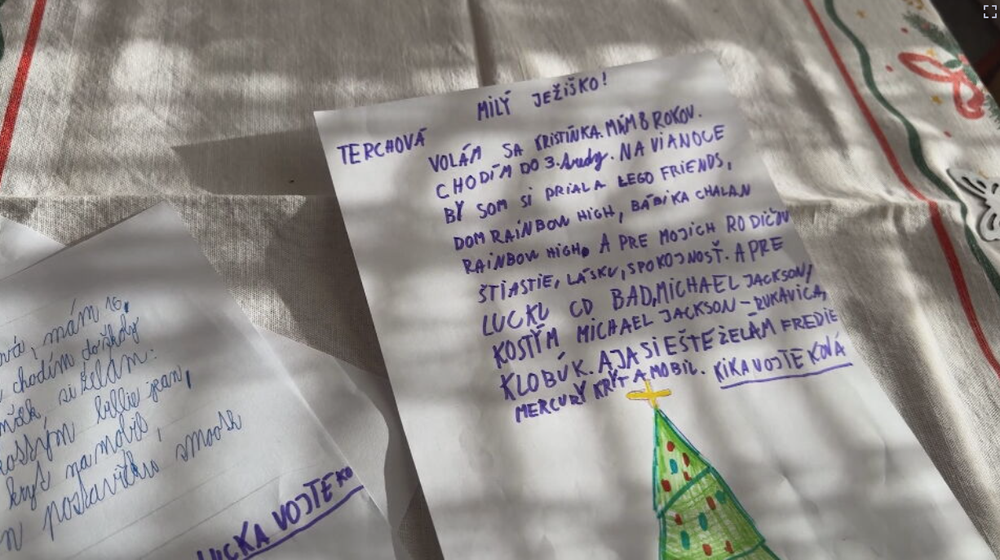 MILÝ JEŽIŠKO!
TERCHOVÁ
VOLÁM SA KRISTÍNKA. MÁM 8 ROKOV.
CHODÍM DO 3. triedy. NA VIANOCE
BY SOM SI PRIALA LEGO FRIENDS,
DOM RAINBOW HIGH, BÁBIKA CHALAN
RAINBOW HIGH, A PRE MOJICH RODIČOV
ŠTIASTIE, LÁSKU, SPOKOJNOSŤ. A PRE
LUCKU CD BAD, MICHAEL JACKSON,
KOSTÝM MICHAEL JACKSON - RUKAVICA,
KLOBÚK. A JA SI EŠTE ŽELÁM FREDIE
MERCURY KRYT A MOBIL. KIKA VOJTEKOVÁ
ová, mám 16,
chodím do školy
si želám:
kostým billie jean,
kryt na mobil,
n postavičku smooth
LUCKA VOJTEKO